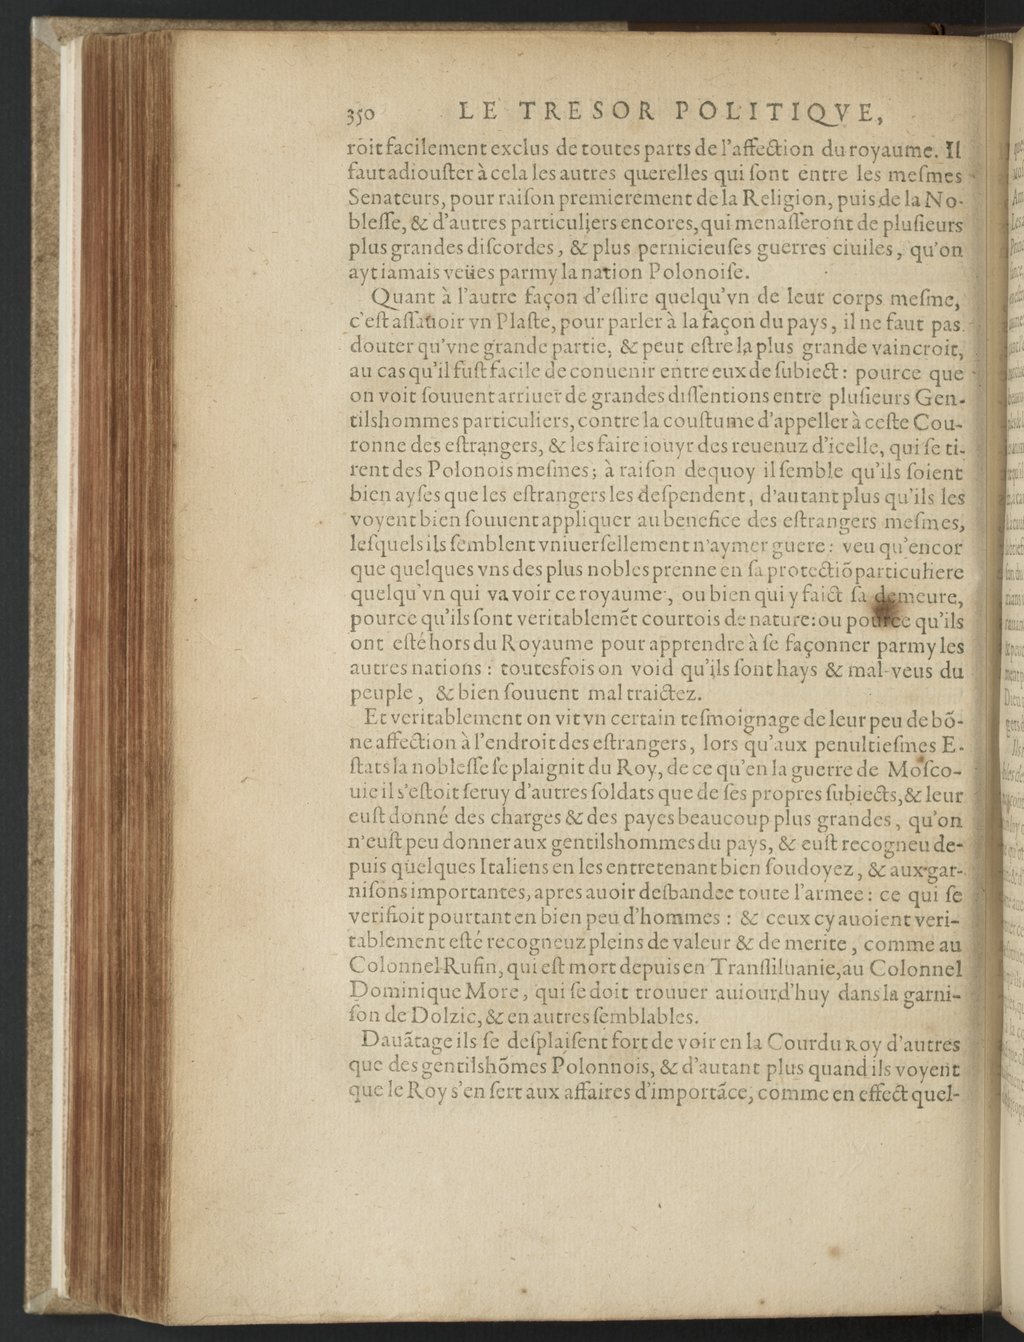 350 LE TRESOR POLITIQVE,
roit facilement exclus de toutes parts de l'affection du royaume. Il
faut adiouſter à cela les autres querelles qui ſont entre les meſmes
Senateurs, pour raiſon premierement de la Religion, puis de la No-
bleſſe, & d'autres particuliers encores, qui menaſſeront de pluſieurs
plus grandes diſcordes, & plus pernicieuſes guerres ciuiles, qu'on
ayt iamais veües parmy la nation Polonoiſe.
Quant à l'autre façon d'eſlire quelqu'vn de leur corps meſme,
c'eſt aſſauoir vn Plaſte, pour parler à la façon du pays, il ne faut pas
douter qu'vne grande partie, & peut eſtre la plus grande vaincroit,
au cas qu'il fuſt facile de conuenir entre eux de ſubiect: pource que
on voit ſouuent arriuer de grandes diſſentions entre pluſieurs Gen-
tilshommes particuliers, contre la couſtume d'appeller à ceſte Cou-
ronne des eſtrangers, & les faire iouyr des reuenuz d'icelle, qui ſe ti-
rent des Polonois meſmes; à raiſon dequoy il ſemble qu'ils ſoient
bien ayſes que les eſtrangers les deſpendent, d'autant plus qu'ils les
voyent bien ſouuent appliquer au benefice des eſtrangers meſmes,
leſquels ils ſemblent vniuerſellement n'aymer guere: veu qu'encor
que quelques vns des plus nobles prenne en ſa protectiõ particuliere
quelqu'vn qui va voir ce royaume, ou bien qui y faict ſa demeure,
pource qu'ils ſont veritablemẽt courtois de nature: ou pource qu'ils
ont eſté hors du Royaume pour apprendre à ſe façonner parmy les
autres nations: toutesfois on void qu'ils ſont hays & mal-veus du
peuple, & bien ſouuent mal traictez.
Et veritablement on vit vn certain teſmoignage de leur peu de bõ-
ne affection à l'endroit des eſtrangers, lors qu'aux penultieſmes E-
ſtats la nobleſſe ſe plaignit du Roy, de ce qu'en la guerre de Moſco-
uie il s'eſtoit ſeruy d'autres ſoldats que de ſes propres ſubiects, & leur
euſt donné des charges & des payes beaucoup plus grandes, qu'on
n'euſt peu donner aux gentilshommes du pays, & euſt recogneu de-
puis quelques Italiens en les entretenant bien ſoudoyez, & aux gar-
niſons importantes, apres auoir deſbandee toute l'armee: ce qui ſe
verifioit pourtant en bien peu d'hommes: & ceux cy auoient veri-
tablement eſté recogneuz pleins de valeur & de merite, comme au
Colonnel Rufin, qui eſt mort depuis en Tranſſiluanie, au Colonnel
Dominique More, qui ſe doit trouuer auiourd'huy dans la garni-
ſon de Dolzic, & en autres ſemblables.
Dauãtage ils ſe deſplaiſent fort de voir en la Cour du Roy d'autres
que des gentilshõmes Polonnois, & d'autant plus quand ils voyent
que le Roy s'en ſert aux affaires d'importãce, comme en effect quel-